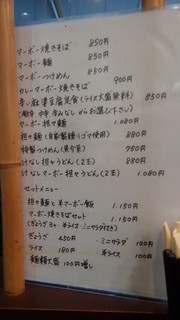 マーボー焼きそば 850円
マーボー麺 850円
マーボーつけめん 850円
カレーマーボー焼きそば 900円
青い麻婆豆腐定食(ライス大盛無料) 850円
(激辛 中辛 辛みなし からお選び下さい)
マーボー担々麺 1.080円
担々麺(自家製練りゴマ使用) 880円
特製つけめん(魚介系) 750円
汁なし担々うどん(2玉) 880円
汁なしマーボー担々うどん(2玉) 1.080円
セットメニュー
担々麺と半マーボー飯 1.150円
マーボー焼きそばセット 1.150円
(ぎょうざ3ヶ 半ライス ミニサラダ付き)
ぎょうざ 450円 ・ミニサラダ 100円
ライス 180円 半ライス 100円
麺類大盛 100円増し